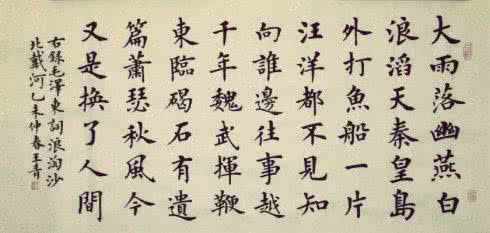 大雨落幽燕白
浪滔天秦皇島
外打魚船一片
汪洋都不見知
向誰邊往事越
千年魏武揮鞭
東臨碣石有遺
篇蕭瑟秋風今
又是換了人間
右錄毛澤東詞浪淘沙
北戴河乙未仲春王青